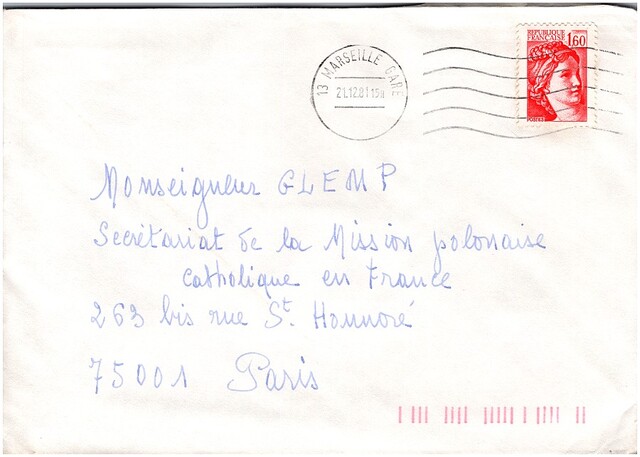 RÉPUBLIQUE
FRANÇAISE 1,60
13 MARSEILLE GARE
21.12.81 19H
POSTES
Monseigneur GLEMP
Secrétariat de la Mission polonaise
catholique en France
263 bis rue St. Honnoré
75001 Paris